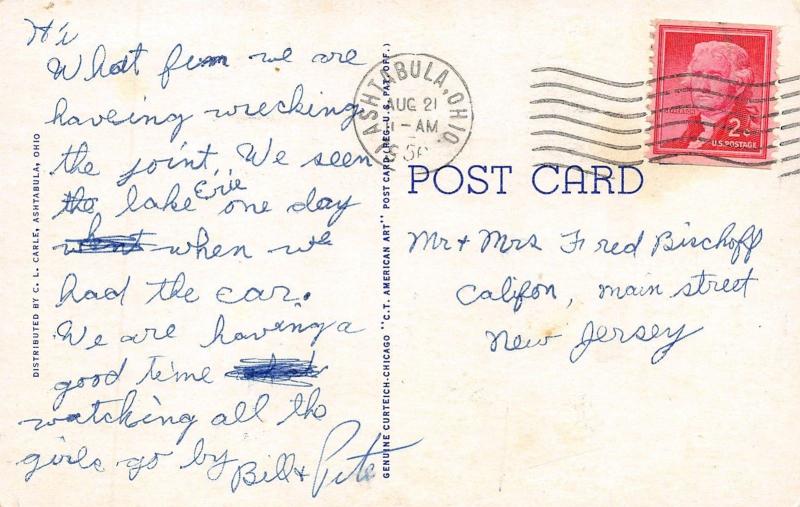 Hi
What fun we are
haveing wrecking
the joint. We seen
the lake Erie one day
when we
had the car.
We are having a
good time
watching all the
girls go by
Bill + Pete
DISTRIBUTED BY C. L. CARLE, ASHTABULA, OHIO
GENUINE CURTEICH-CHICAGO "C.T. AMERICAN ART" POST CARD (REG. U.S. PAT. OFF.)
ASHTABULA, OHIO
AUG 21
-AM
POST CARD
2¢
U.S. POSTAGE
Mr + Mrs Fred Bischoff
Califon, main street
New Jersey